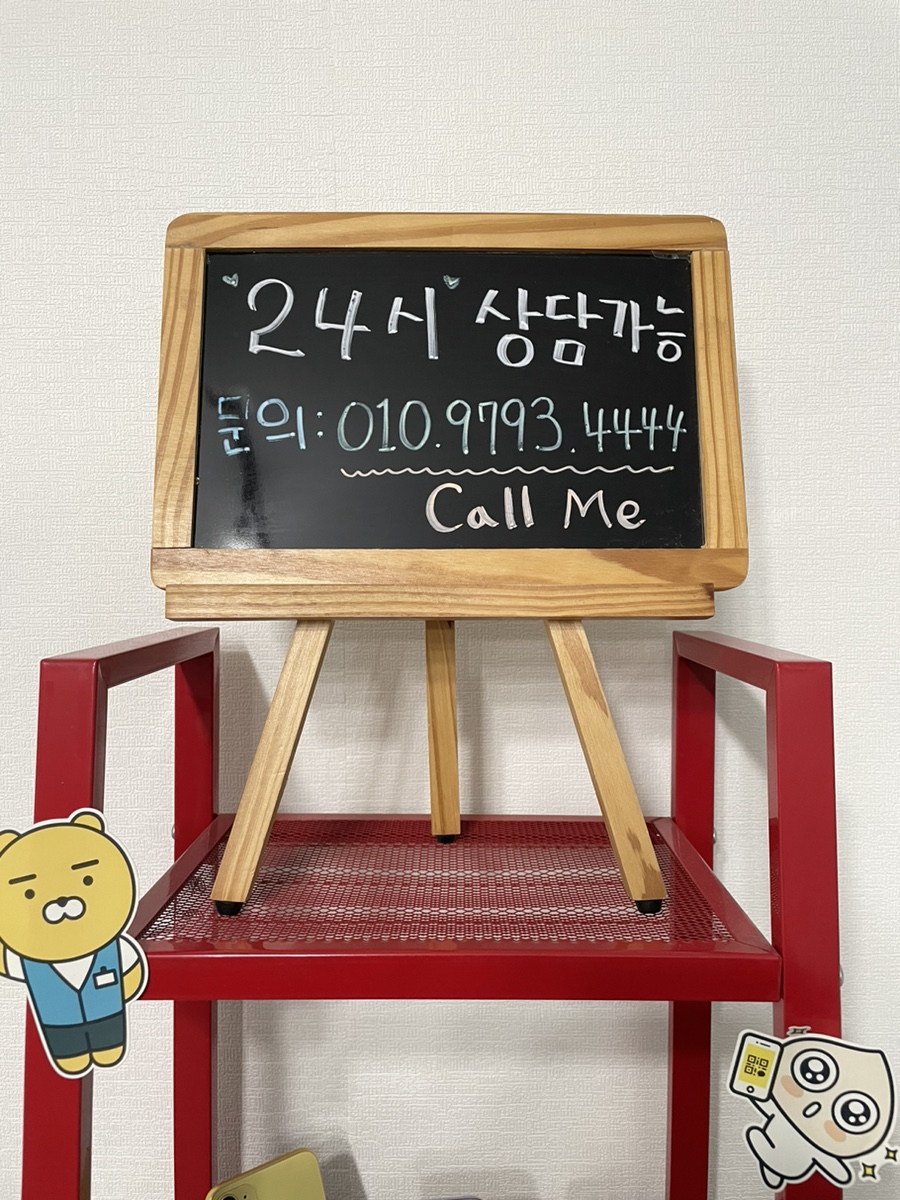 "24시" 상담가능
문의: 010.9793.4444
Call Me